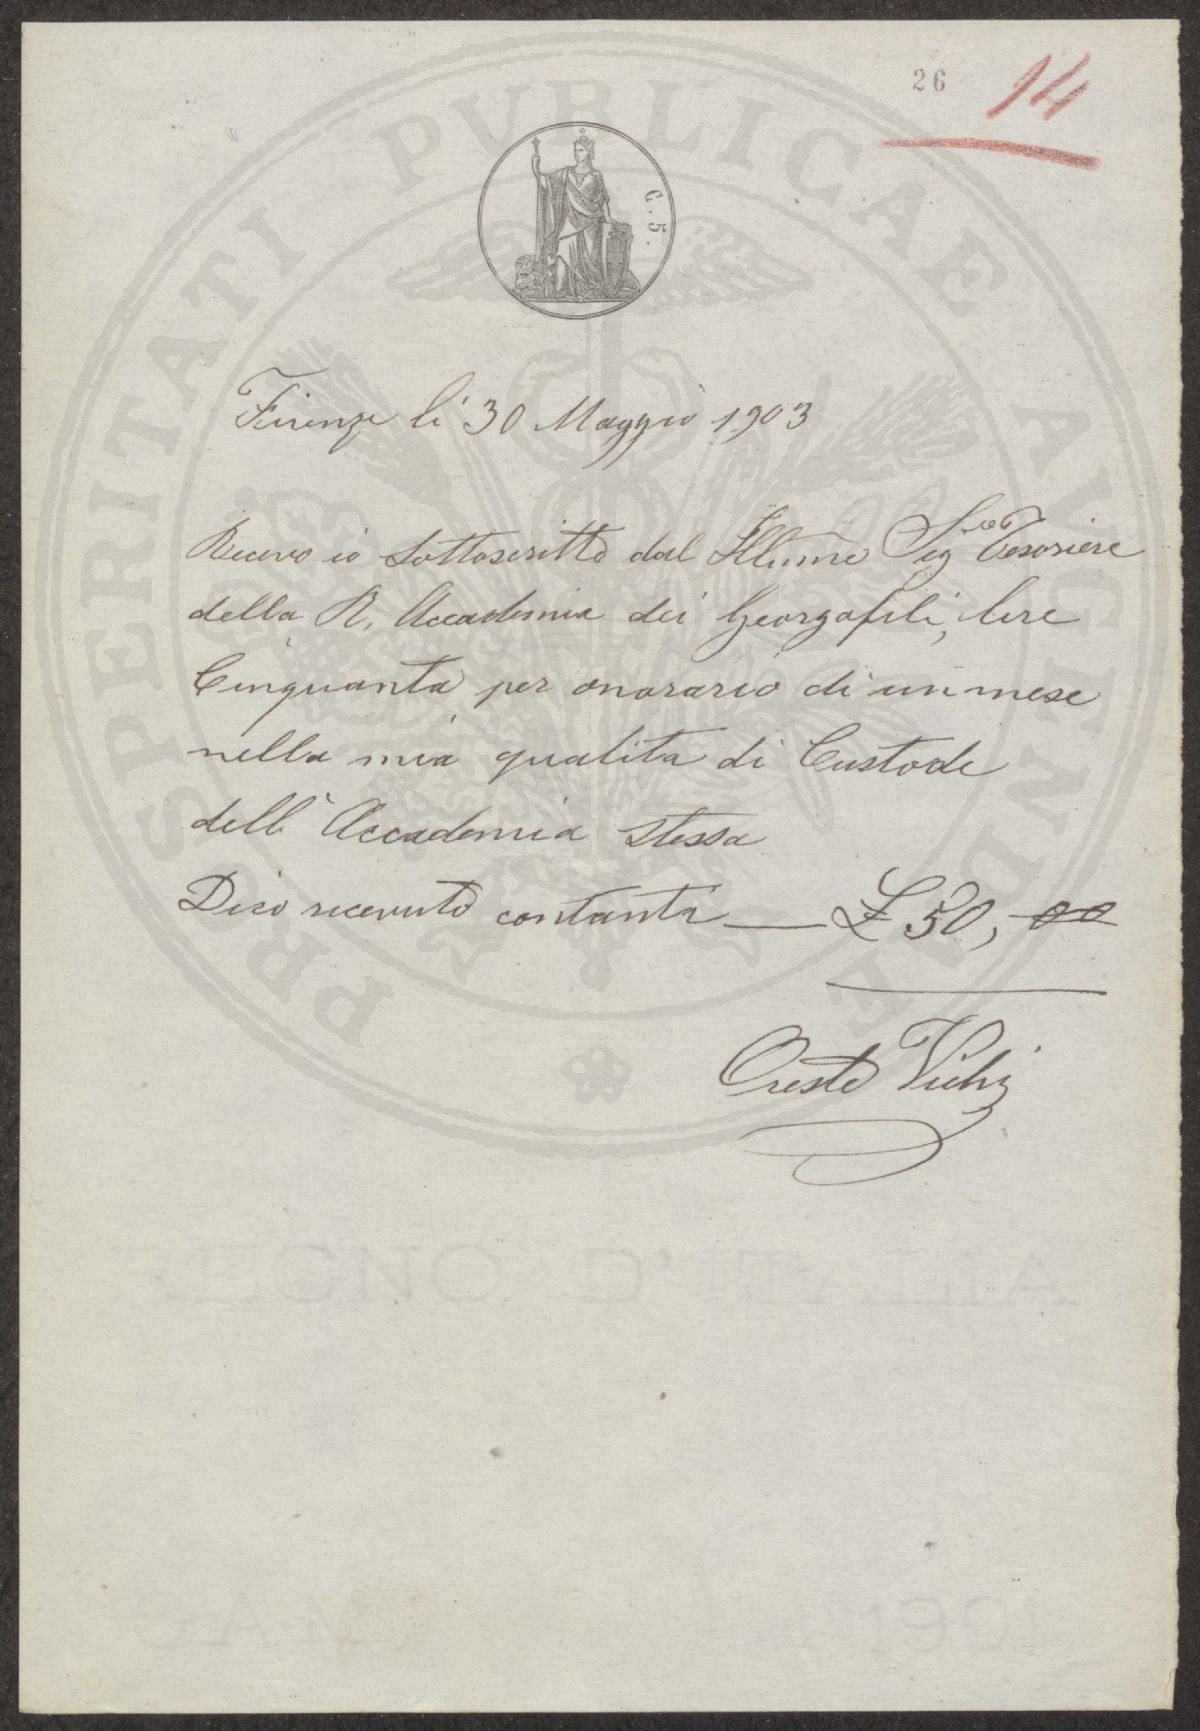 26 14
C. 5.
PROSPERITATI PUBLICAE AUGENDAE
Firenze li 30 Maggio 1903
Ricevo io sottoscritto dal Illumo Sigre Tesoriere
della R. Accademia dei Georgofili, lire
Cinquanta per onorario di un mese
nella mia qualita di Custode
dell'Accademia stessa
Dico ricevuto contanti — £ 50,00
Oreste Vichi